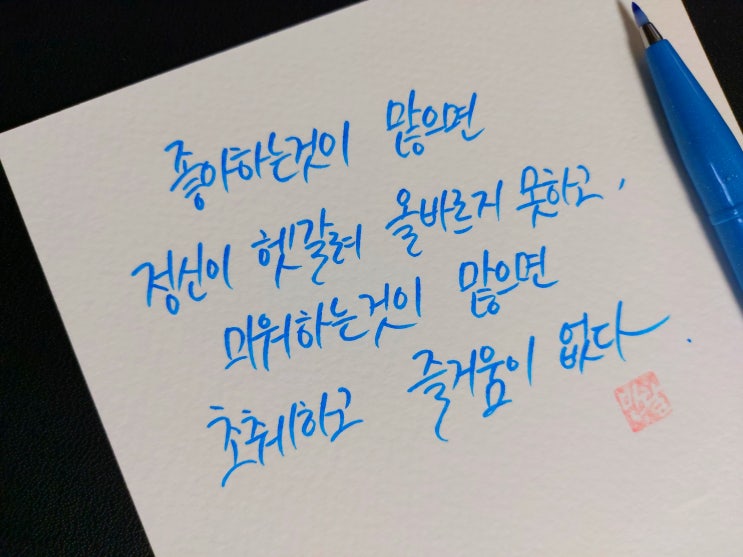 좋아하는것이 많으면
정신이 헷갈려 올바르지 못하고,
미워하는것이 많으면
초췌하고 즐거움이 없다.